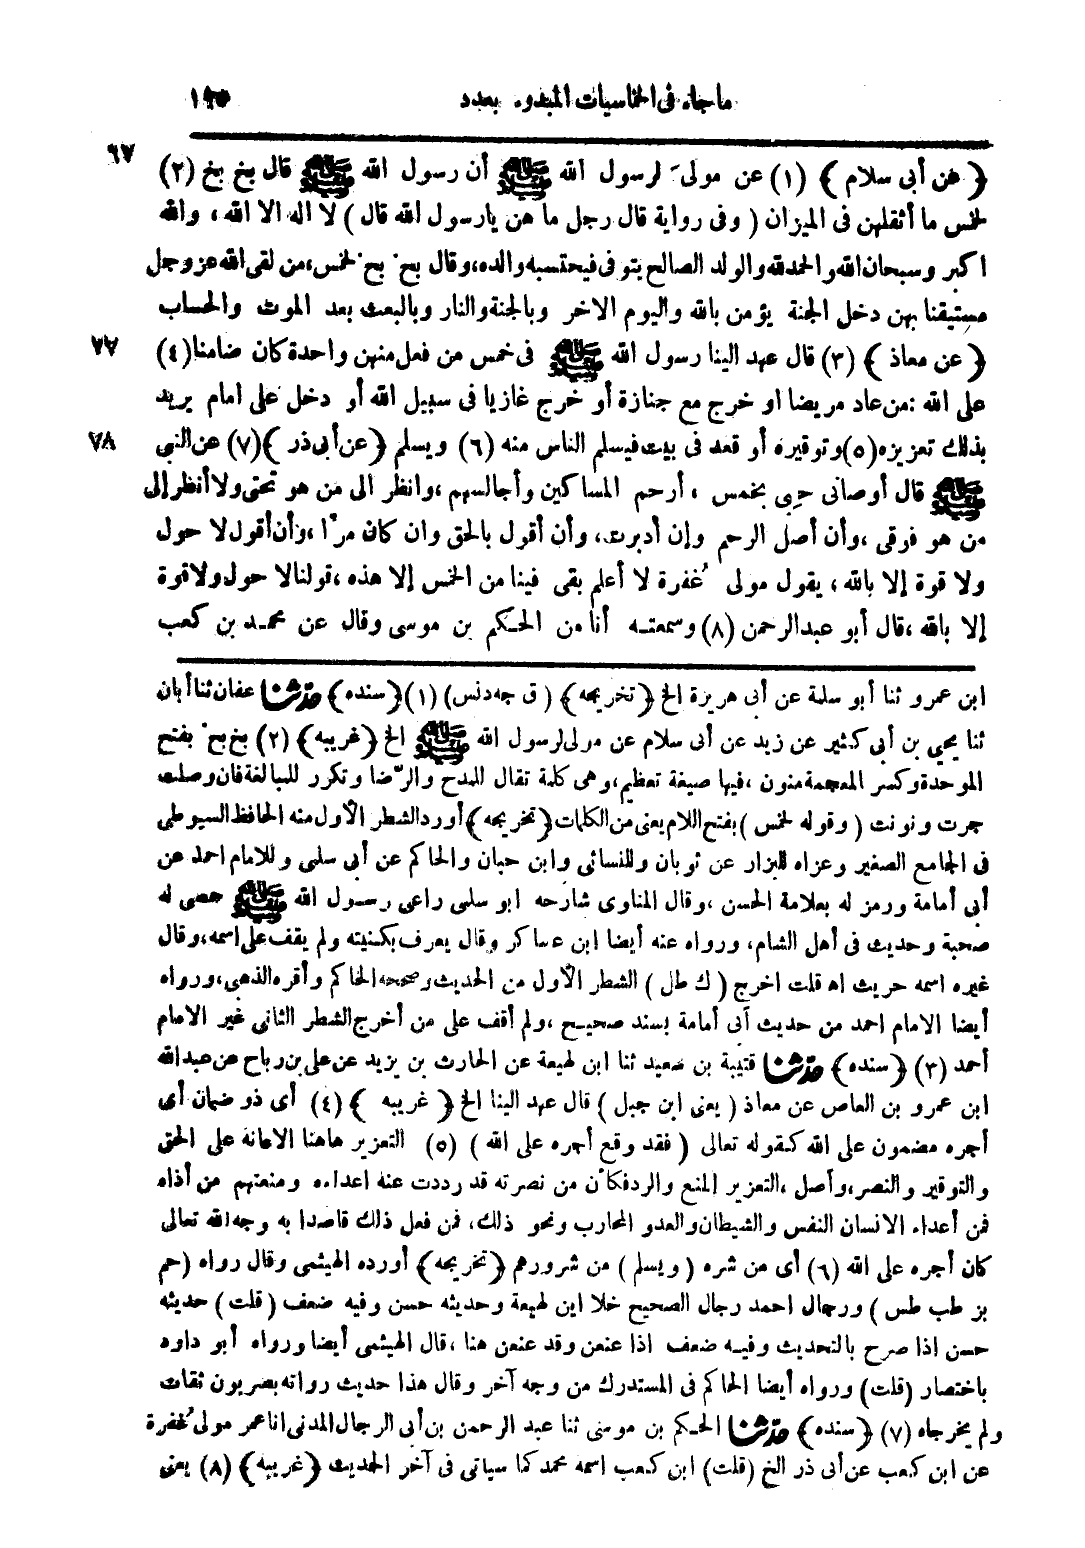 ما جاء فى الخماسيات المبدوءة بعدد
٦٧
﴿ عن أبى سلام ﴾ (١) عن مولىً لرسول الله ﷺ أن رسول الله ﷺ قال بخ بخ (٢)
لخمس ما أثقلهن فى الميزان ( وفى رواية قال رجل ما هن يارسول الله قال ) لا اله الا الله ، والله
اكبر وسبحان الله والحمد لله والولد الصالح يتوفى فيحتسبه والده،وقال بخ بخ لخمس،من لقى الله عز وجل
مستيقنا بهن دخل الجنة يؤمن بالله واليوم الاخر وبالجنة والنار وبالبعث بعد الموت والحساب
﴿ عن معاذ ﴾ (٣) قال عهد الينا رسول الله ﷺ فى خمس من فعل منهن واحدة كان ضامنا (٤)
على الله :من عاد مريضا او خرج مع جنازة أو خرج غازيا فى سبيل الله أو دخل على امام يريد
٧٨
بذلك تعزيزه (٥) وتوقيره أو قعد فى بيت فيسلم الناس منه (٦) ويسلم ﴿ عن أبى ذر ﴾ (٧) عن النبى
ﷺ قال أوصانى حبى بخمس ، أرحم المساكين وأجالسهم ،وانظر الى من هو تحتى ولا أنظر إلى
من هو فوقى ،وأن أصل الرحم وإن أدبرت، وأن أقول بالحق وان كان مرًا ،وأن أقول لا حول
ولا قوة إلا بالله ، يقول مولى غُفرة لا أعلم بقى فينا من الخمس إلا هذه ،قولنا لا حول ولا قوة
إلا بالله ،قال أبو عبد الرحمن (٨) وسمعته أنا من الحكم بن موسى وقال عن محمد بن كعب
ابن عمرو ثنا أبو سلمة عن أبى هريرة الخ ﴿ تخريجه ﴾ ( ق جه دنس ) (١) ﴿ سنده ﴾ حدّثنا عفان ثنا أبان
ثنا يحيى بن أبى كثير عن زيد عن أبى سلام عن مولى لرسول الله ﷺ الخ ﴿ غريبه ﴾ (٢) بخ بخ بفتح
الموحدة وكسر المعجمة منون ،فيها صيغة تعظيم،وهى كلمة تقال للمدح والرّضا وتكرر للمبالغة فان وصلت
جرت ونونت ( وقوله لخمس ) بفتح اللام يعنى من الكلمات ﴿ تخريجه ﴾ أورد الشطر الأول منه الحافظ السيوطى
فى الجامع الصغير وعزاه للبزار عن ثوبان وللنسائى وابن حبان والحاكم عن أبى سلمى وللامام احمد عن
أبى أمامة ورمز له بعلامة الحسن ،وقال المناوى شارحه ابو سلمى راعى رسول الله ﷺ حمصى له
صحبة وحديث فى أهل الشام، ورواه عنه أيضا ابن عساكر وقال يعرف بكنيته ولم يقف على اسمه،وقال
غيره اسمه حريث اه قلت اخرج ( ك طل ) الشطر الأول من الحديث وصححه الحاكم وأقره الذهبى،ورواه
أيضا الامام احمد من حديث أبى أمامة بسند صحيح ،ولم أقف على من أخرج الشطر الثانى غير الامام
أحمد (٣) ﴿ سنده ﴾ حدّثنا قتيبة بن سعيد ثنا ابن لهيعة عن الحارث بن يزيد عن على بن رباح عن عبد الله
ابن عمرو بن العاص عن معاذ ( يعنى ابن جبل ) قال عهد الينا الخ ﴿ غريبه ﴾ (٤) أى ذو ضمان أى
أجره مضمون على الله كقوله تعالى ( فقد وقع أجره على الله ) (٥) التعزير هاهنا الاعانة على الحق
والتوقير والنصر،وأصل ،التعزير المنع والرد فكأن من نصرته قد رددت عنه اعداءه ومنعتهم من أذاه
فمن أعداء الانسان النفس والشيطان والعدو المحارب ونحو ذلك، فمن فعل ذلك قاصدا به وجه الله تعالى
كان أجره على الله (٦) أى من شره ( ويسلم ) من شرورهم ﴿ تخريجه ﴾ أورده الهيثمى وقال رواه ( حم
بز طب طس ) ورجال احمد رجال الصحيح خلا ابن لهيعة وحديثه حسن وفيه ضعف ( قلت ) حديثه
حسن اذا صرح بالتحديث وفيه ضعف اذا عنعن وقد عنعن هنا ،قال الهيثمى أيضا ورواه أبو داود
باختصار (قلت) ورواه أيضا الحاكم فى المستدرك من وجه آخر وقال هذا حديث رواته بصريون ثقات
ولم يخرجاه (٧) ﴿ سنده ﴾ حدّثنا الحكم بن موسى ثنا عبد الرحمن بن أبى الرجال المدنى انا عمر مولى غُفرة
عن ابن كعب عن أبى ذر الخ (قلت) ابن كعب اسمه محمد كما سيأتى فى آخر الحديث ﴿ غريبه ﴾ (٨) يعنى